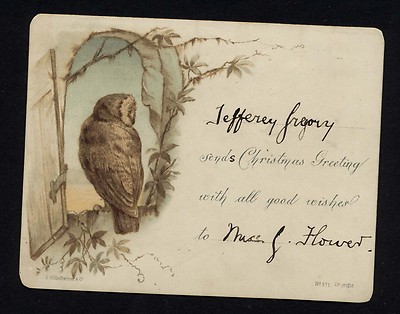 Jefferey Gregory
sends Christmas Greeting
with all good wishes
to Miss G. Flower.